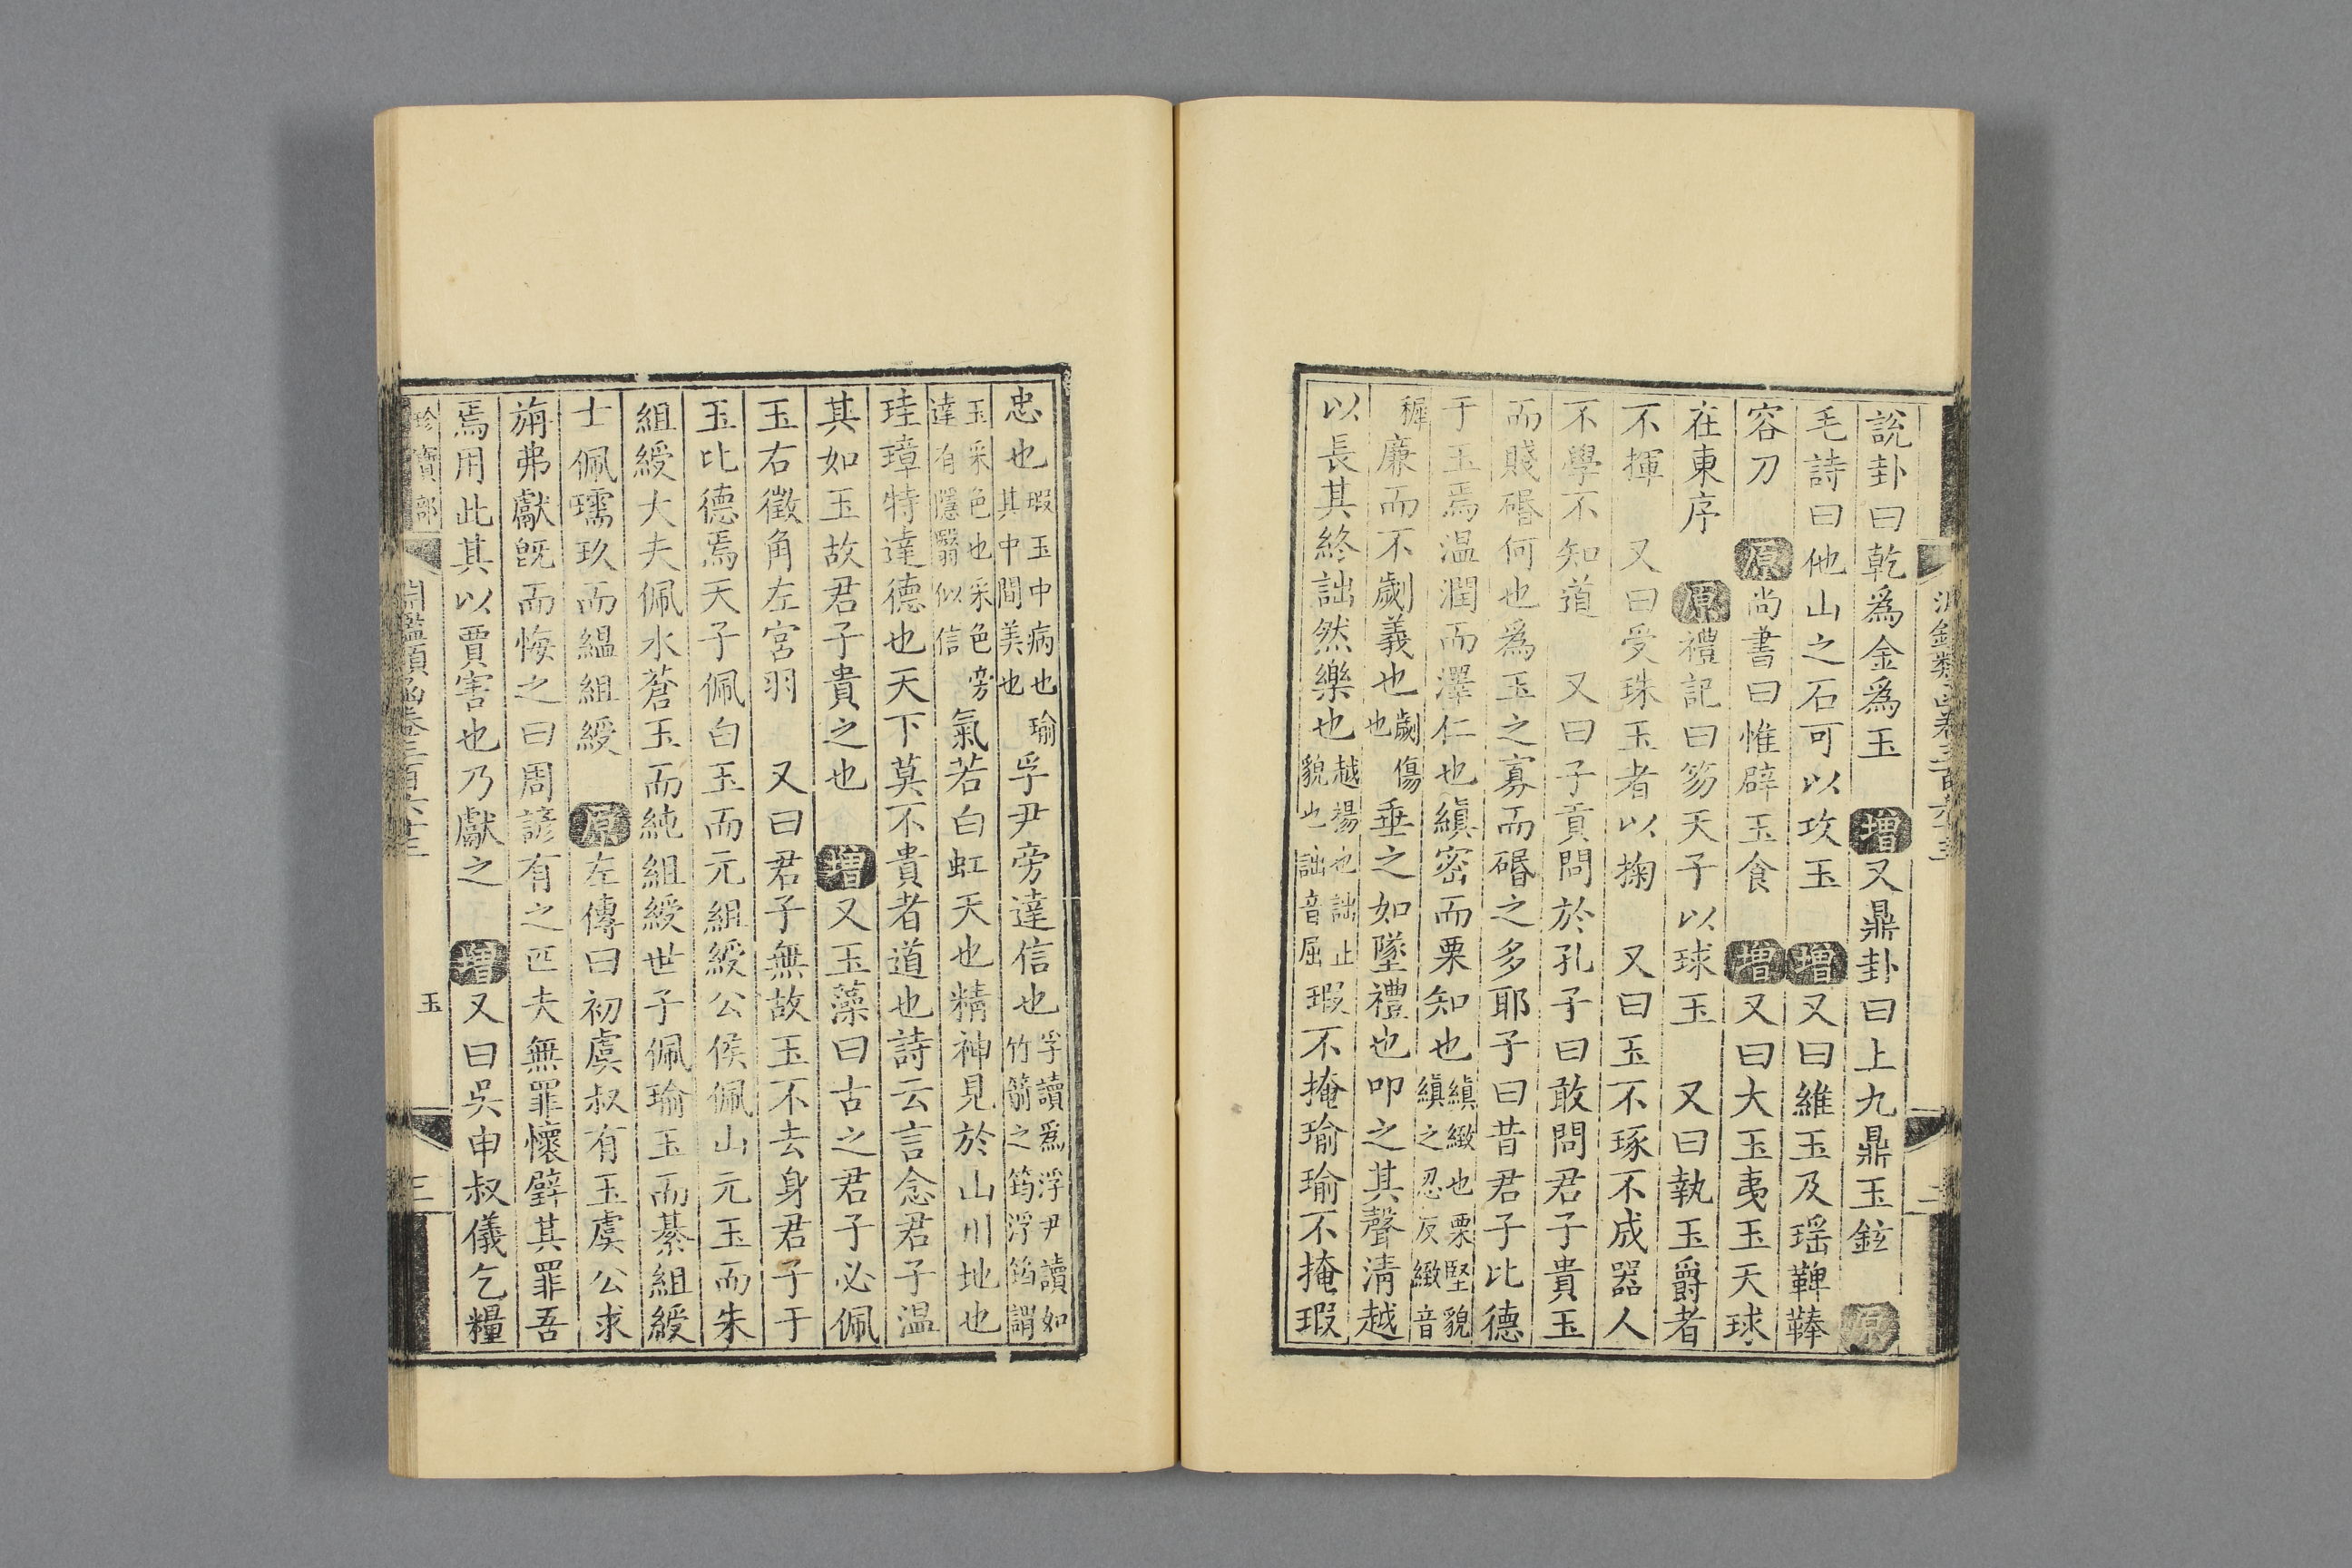 說卦曰乾爲金爲玉 增又鼎卦曰上九鼎玉鉉 原
毛詩曰他山之石可以攻玉 增又曰維玉及瑶鞞鞛
容刀 原尚書曰惟辟玉食 增又曰大玉夷玉天球
在東序 原禮記曰笏天子以球玉 又曰執玉爵者
不揮 又曰受珠玉者以掬 又曰玉不琢不成器人
不學不知道 又曰子貢問於孔子曰敢問君子貴玉
而賤碈何也爲玉之寡而碈之多耶子曰昔君子比德
于玉焉温潤而澤仁也縝密而栗知也縝緻也栗堅貌縝之忍反緻音
穉廉而不劌義也劌傷也垂之如墜禮也叩之其聲清越
以長其終詘然樂也越揚也詘止貌也詘音屈瑕不掩瑜瑜不掩瑕
忠也瑕玉中病也瑜其中間美也孚尹旁達信也孚讀爲浮尹讀如竹箭之筠浮筠謂
玉采色也采色旁達有隱翳似信氣若白虹天也精神見於山川地也
珪璋特達德也天下莫不貴者道也詩云言念君子温
其如玉故君子貴之也 增又玉藻曰古之君子必佩
玉右徵角左宮羽 又曰君子無故玉不去身君子于
玉比德焉天子佩白玉而元組綬公侯佩山元玉而朱
組綬大夫佩水蒼玉而純組綬世子佩瑜玉而綦組綬
士佩瓀玖而緼組綬 原左傳曰初虞叔有玉虞公求
旃弗獻既而悔之曰周諺有之匹夫無罪懷璧其罪吾
焉用此其以賈害也乃獻之 增又曰吳申叔儀乞糧
珍寶部 淵鑑類函卷三百六十三 玉 三